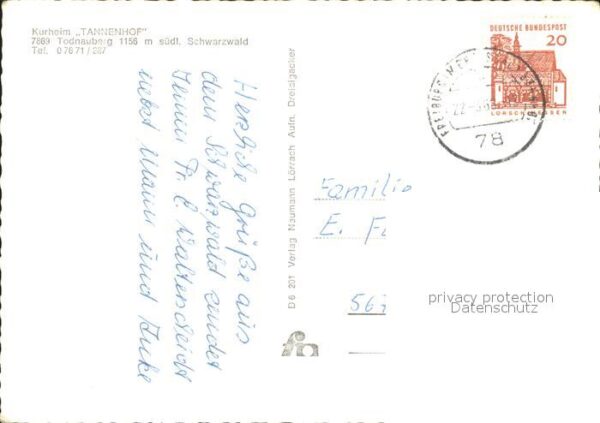 Kurheim „TANNENHOF"
7869 Todtnauberg 1156 m südl. Schwarzwald
Tel. 07671/287
Herzliche Grüße aus
dem Schwarzwald sendet
Fr. E. Walterscheidt
nebst Mann und Anke
D 6 201 Verlag Naumann Lörrach Aufn. Dreisigacker
DEUTSCHE BUNDESPOST
20
LORSCH HESSEN
FREIBURG
78
Familie
E. F
56
privacy protection
Datenschutz